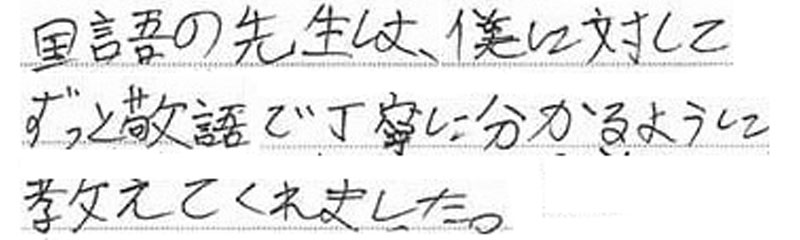 国語の先生は、僕に対して
ずっと敬語で丁寧に分かるようにして
教えてくれました。